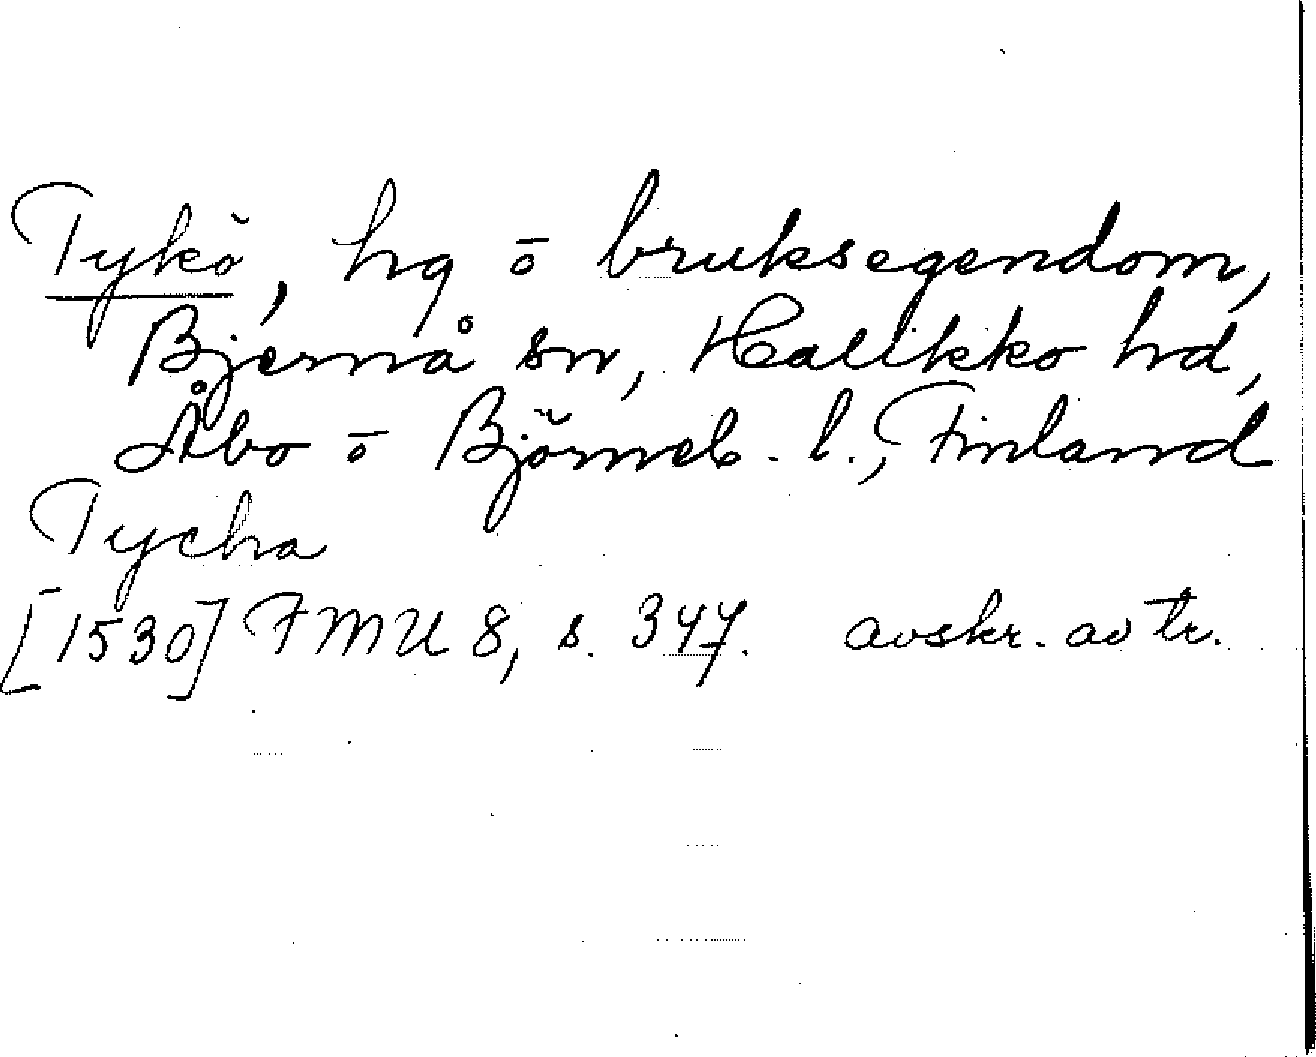 Tykö, hg ō bruksegendom,
Bjernå sn, Halikko hd,
Åbo ō Björneb. l., Finland
Tycha
[1530] FMU 8, s. 347. avskr. av tr.